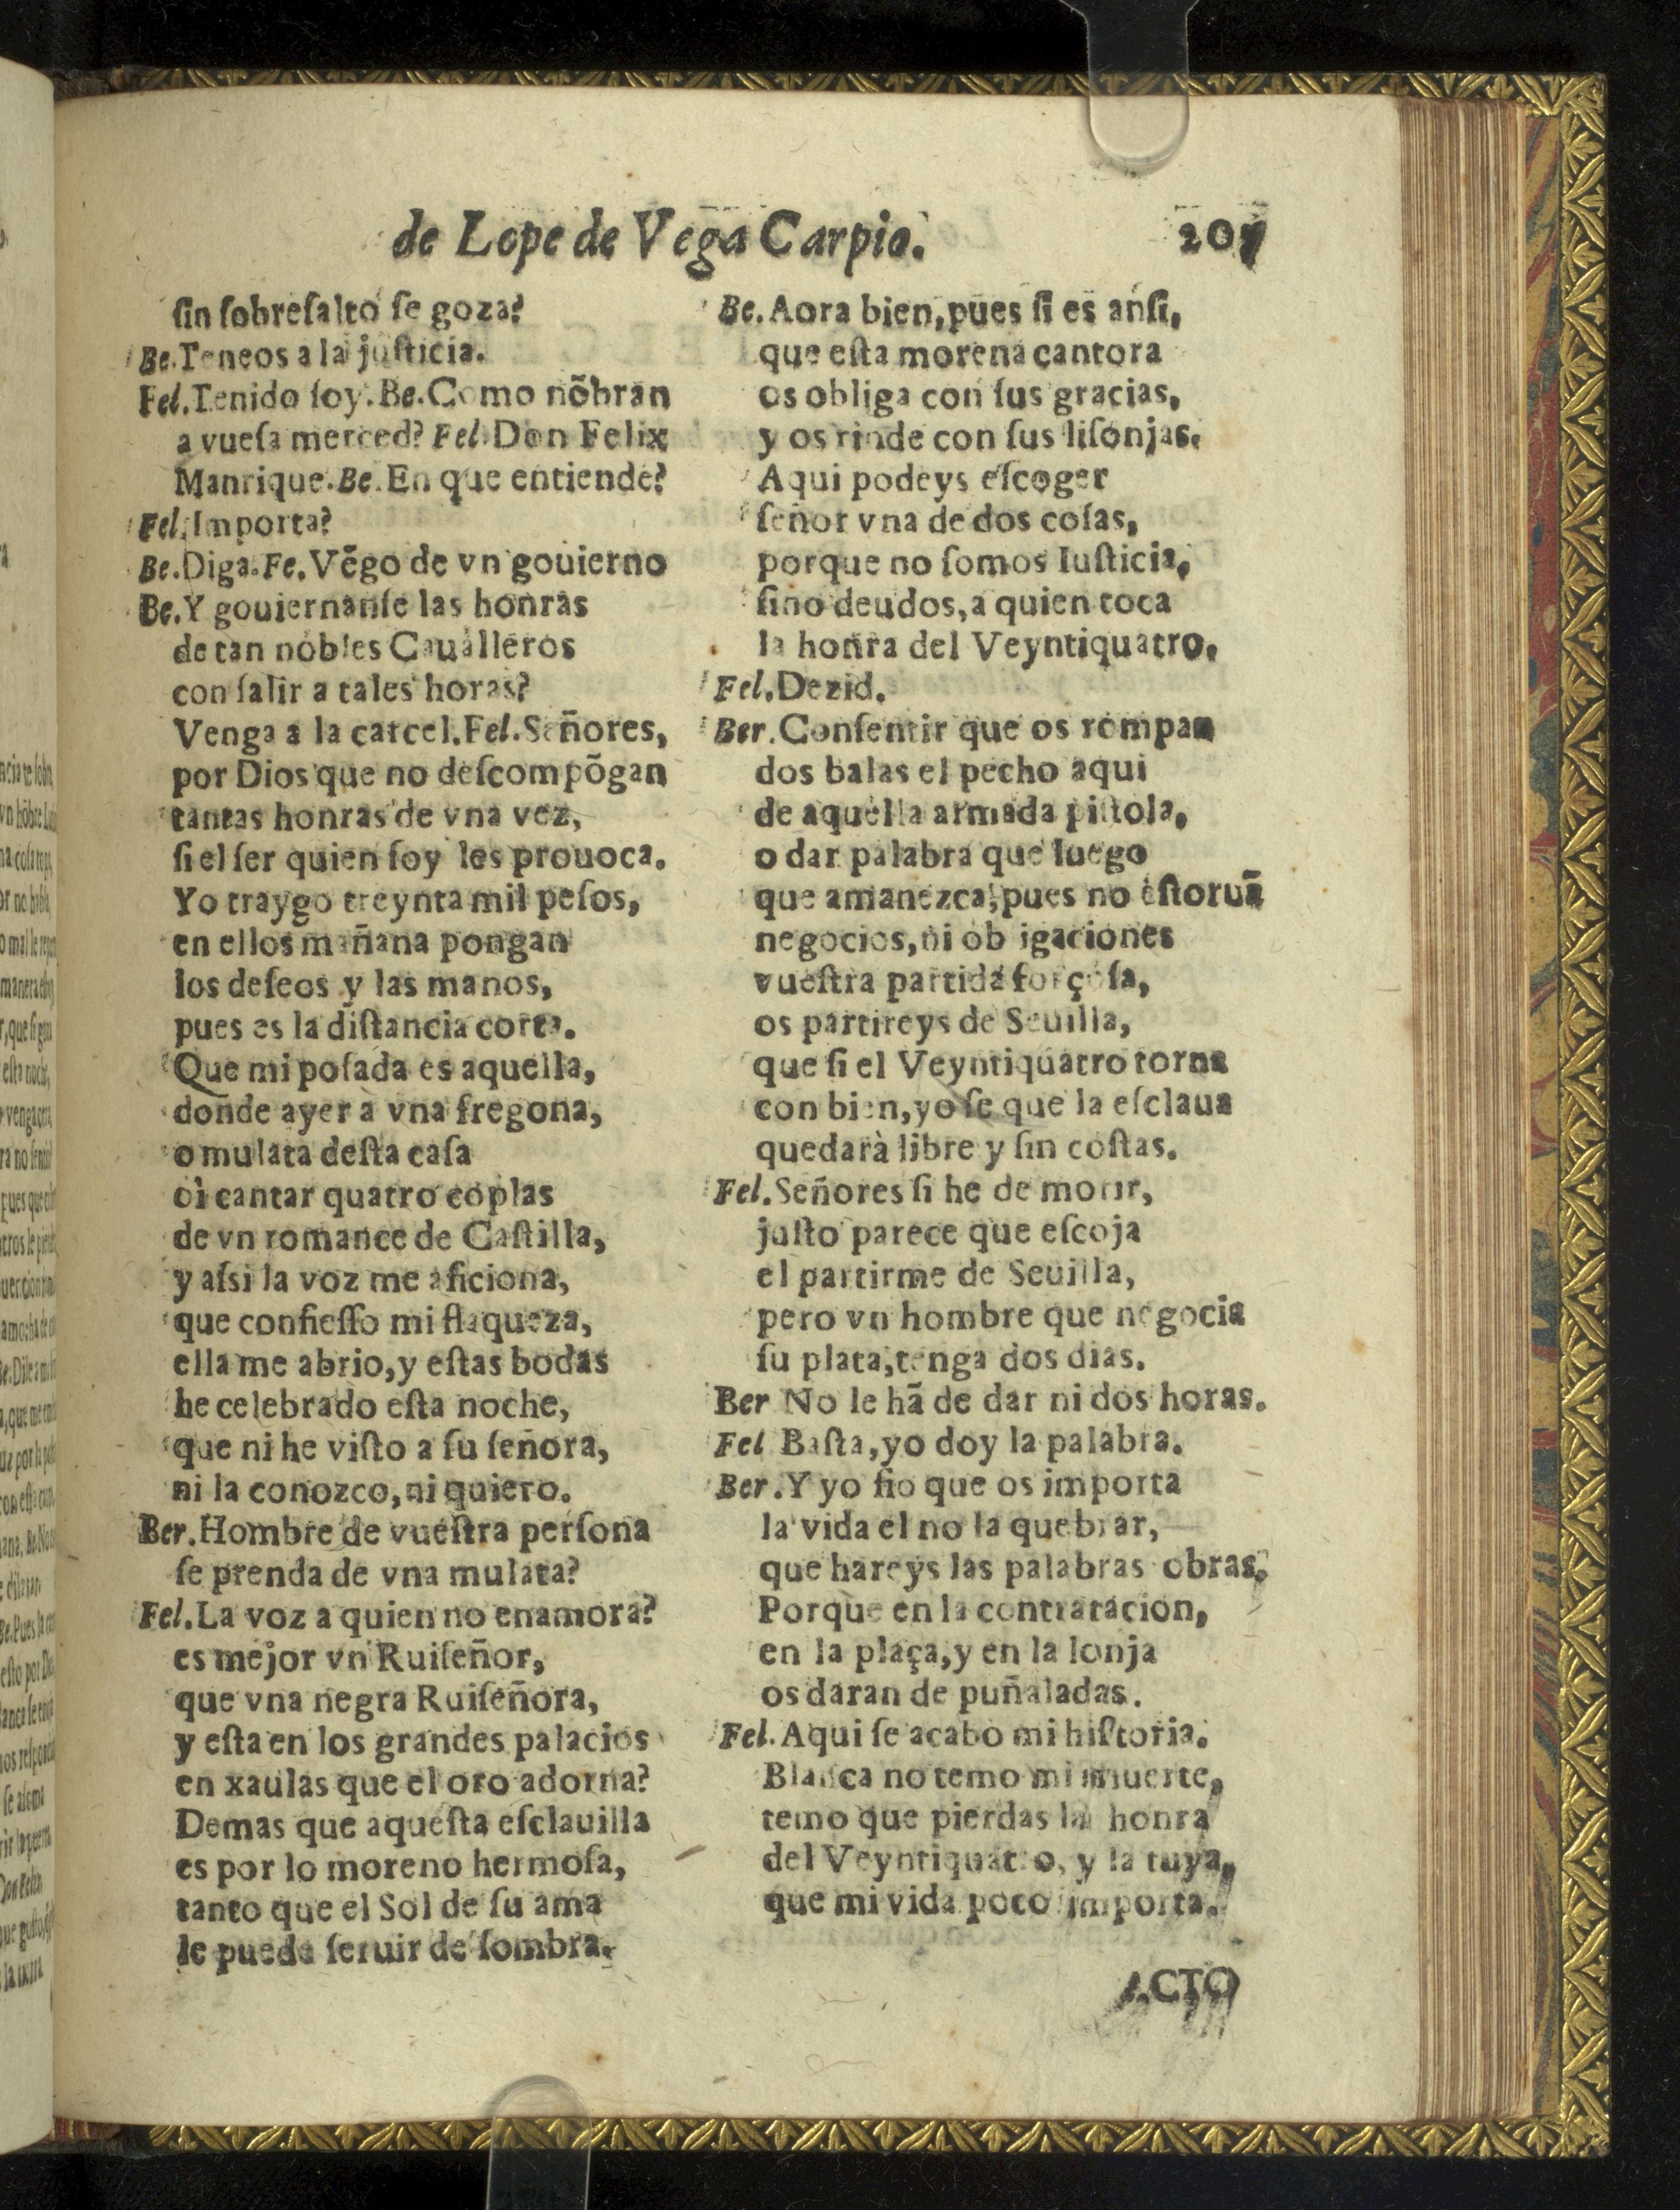 de Lope de Vega Carpio. 207
ſin ſobreſalto ſe goza?
Be. Teneos a la juſticia.
Fel. Tenido ſoy. Be. Como nõbran
a vueſa merced? Fel. Don Felix
Manrique. Be. En que entiende?
Fel. Importa?
Be. Diga. Fe. Vẽgo de vn gouierno
Be. Y gouiernanſe las honras
de tan nobles Caualleros
con ſalir a tales horas?
Venga a la carcel. Fel. Señores,
por Dios que no deſcompõgan
tantas honras de vna vez,
ſi el ſer quien ſoy les prouoca.
Yo traygo treynta mil peſos,
en ellos mañana pongan
los deſeos y las manos,
pues es la diſtancia corta.
Que mi poſada es aquella,
donde ayer a vna fregona,
o mulata deſta caſa
oì cantar quatro coplas
de vn romance de Caſtilla,
y aſsi la voz me aficiona,
que confieſſo mi flaqueza,
ella me abrio, y eſtas bodas
he celebrado eſta noche,
que ni he viſto a ſu ſeñora,
ni la conozco, ni quiero.
Ber. Hombre de vueſtra perſona
ſe prenda de vna mulata?
Fel. La voz a quien no enamora?
es mejor vn Ruiſeñor,
que vna negra Ruiſeñora,
y eſta en los grandes palacios
en xaulas que el oro adorna?
Demas que aqueſta eſclauilla
es por lo moreno hermoſa,
tanto que el Sol de ſu ama
le puede ſeruir de ſombra.
Be. Aora bien, pues ſi es anſi,
que eſta morena cantora
os obliga con ſus gracias,
y os rinde con ſus liſonjas.
Aqui podeys eſcoger
ſeñor vna de dos coſas,
porque no ſomos Iuſticia,
ſino deudos, a quien toca
la honra del Veyntiquatro.
Fel. Dezid.
Ber. Conſentir que os rompan
dos balas el pecho aqui
de aquella armada piſtola,
o dar palabra que luego
que amanezca, pues no eſtoruã
negocios, ni obligaciones
vueſtra partida forçoſa,
os partireys de Seuilla,
que ſi el Veyntiquatro torna
con bien, yo ſe que la eſclaua
quedarà libre y ſin coſtas.
Fel. Señores ſi he de morir,
juſto parece que eſcoja
el partirme de Seuilla,
pero vn hombre que negocia
ſu plata, tenga dos dias.
Ber No le hã de dar ni dos horas.
Fel Baſta, yo doy la palabra.
Ber. Y yo fio que os importa
la vida el no la quebrar,
que hareys las palabras obras.
Porque en la contratacion,
en la plaça, y en la lonja
os daran de puñaladas.
Fel. Aqui ſe acabo mi hiſtoria.
Blanca no temo mi muerte,
temo que pierdas la honra
del Veyntiquatro, y la tuya,
que mi vida poco importa.
ACTO